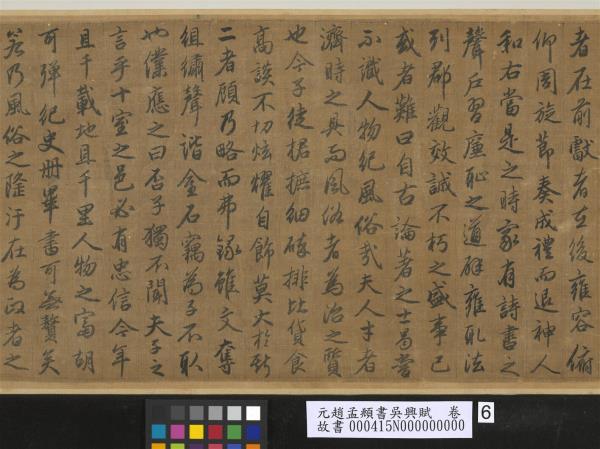 者在前獻者在後雍容俯
仰周旋節奏成禮而退神人
和右當是之時家有詩書之
聲戶習廉恥之道辟雍取法
列郡觀效誠不朽之盛事已
或者難曰自古論著之士曷嘗
不識人物紀風俗哉夫人才者
濟時之具而風俗者為治之質
也今子徒捃摭細碎排比貨食
高談不切炫耀自飾莫大於斯
二者顧乃略而弗錄雖文奪
組繡聲諧金石竊為子不取
也僕應之曰否子獨不聞夫子之
言乎十室之邑必有忠信今年
且千載地且千里人物之富胡
可殫紀史冊畢書可無贅矣
若乃風俗之隆汙在為政者之
元趙孟頫書吳興賦 卷
故書000415N000000000
6